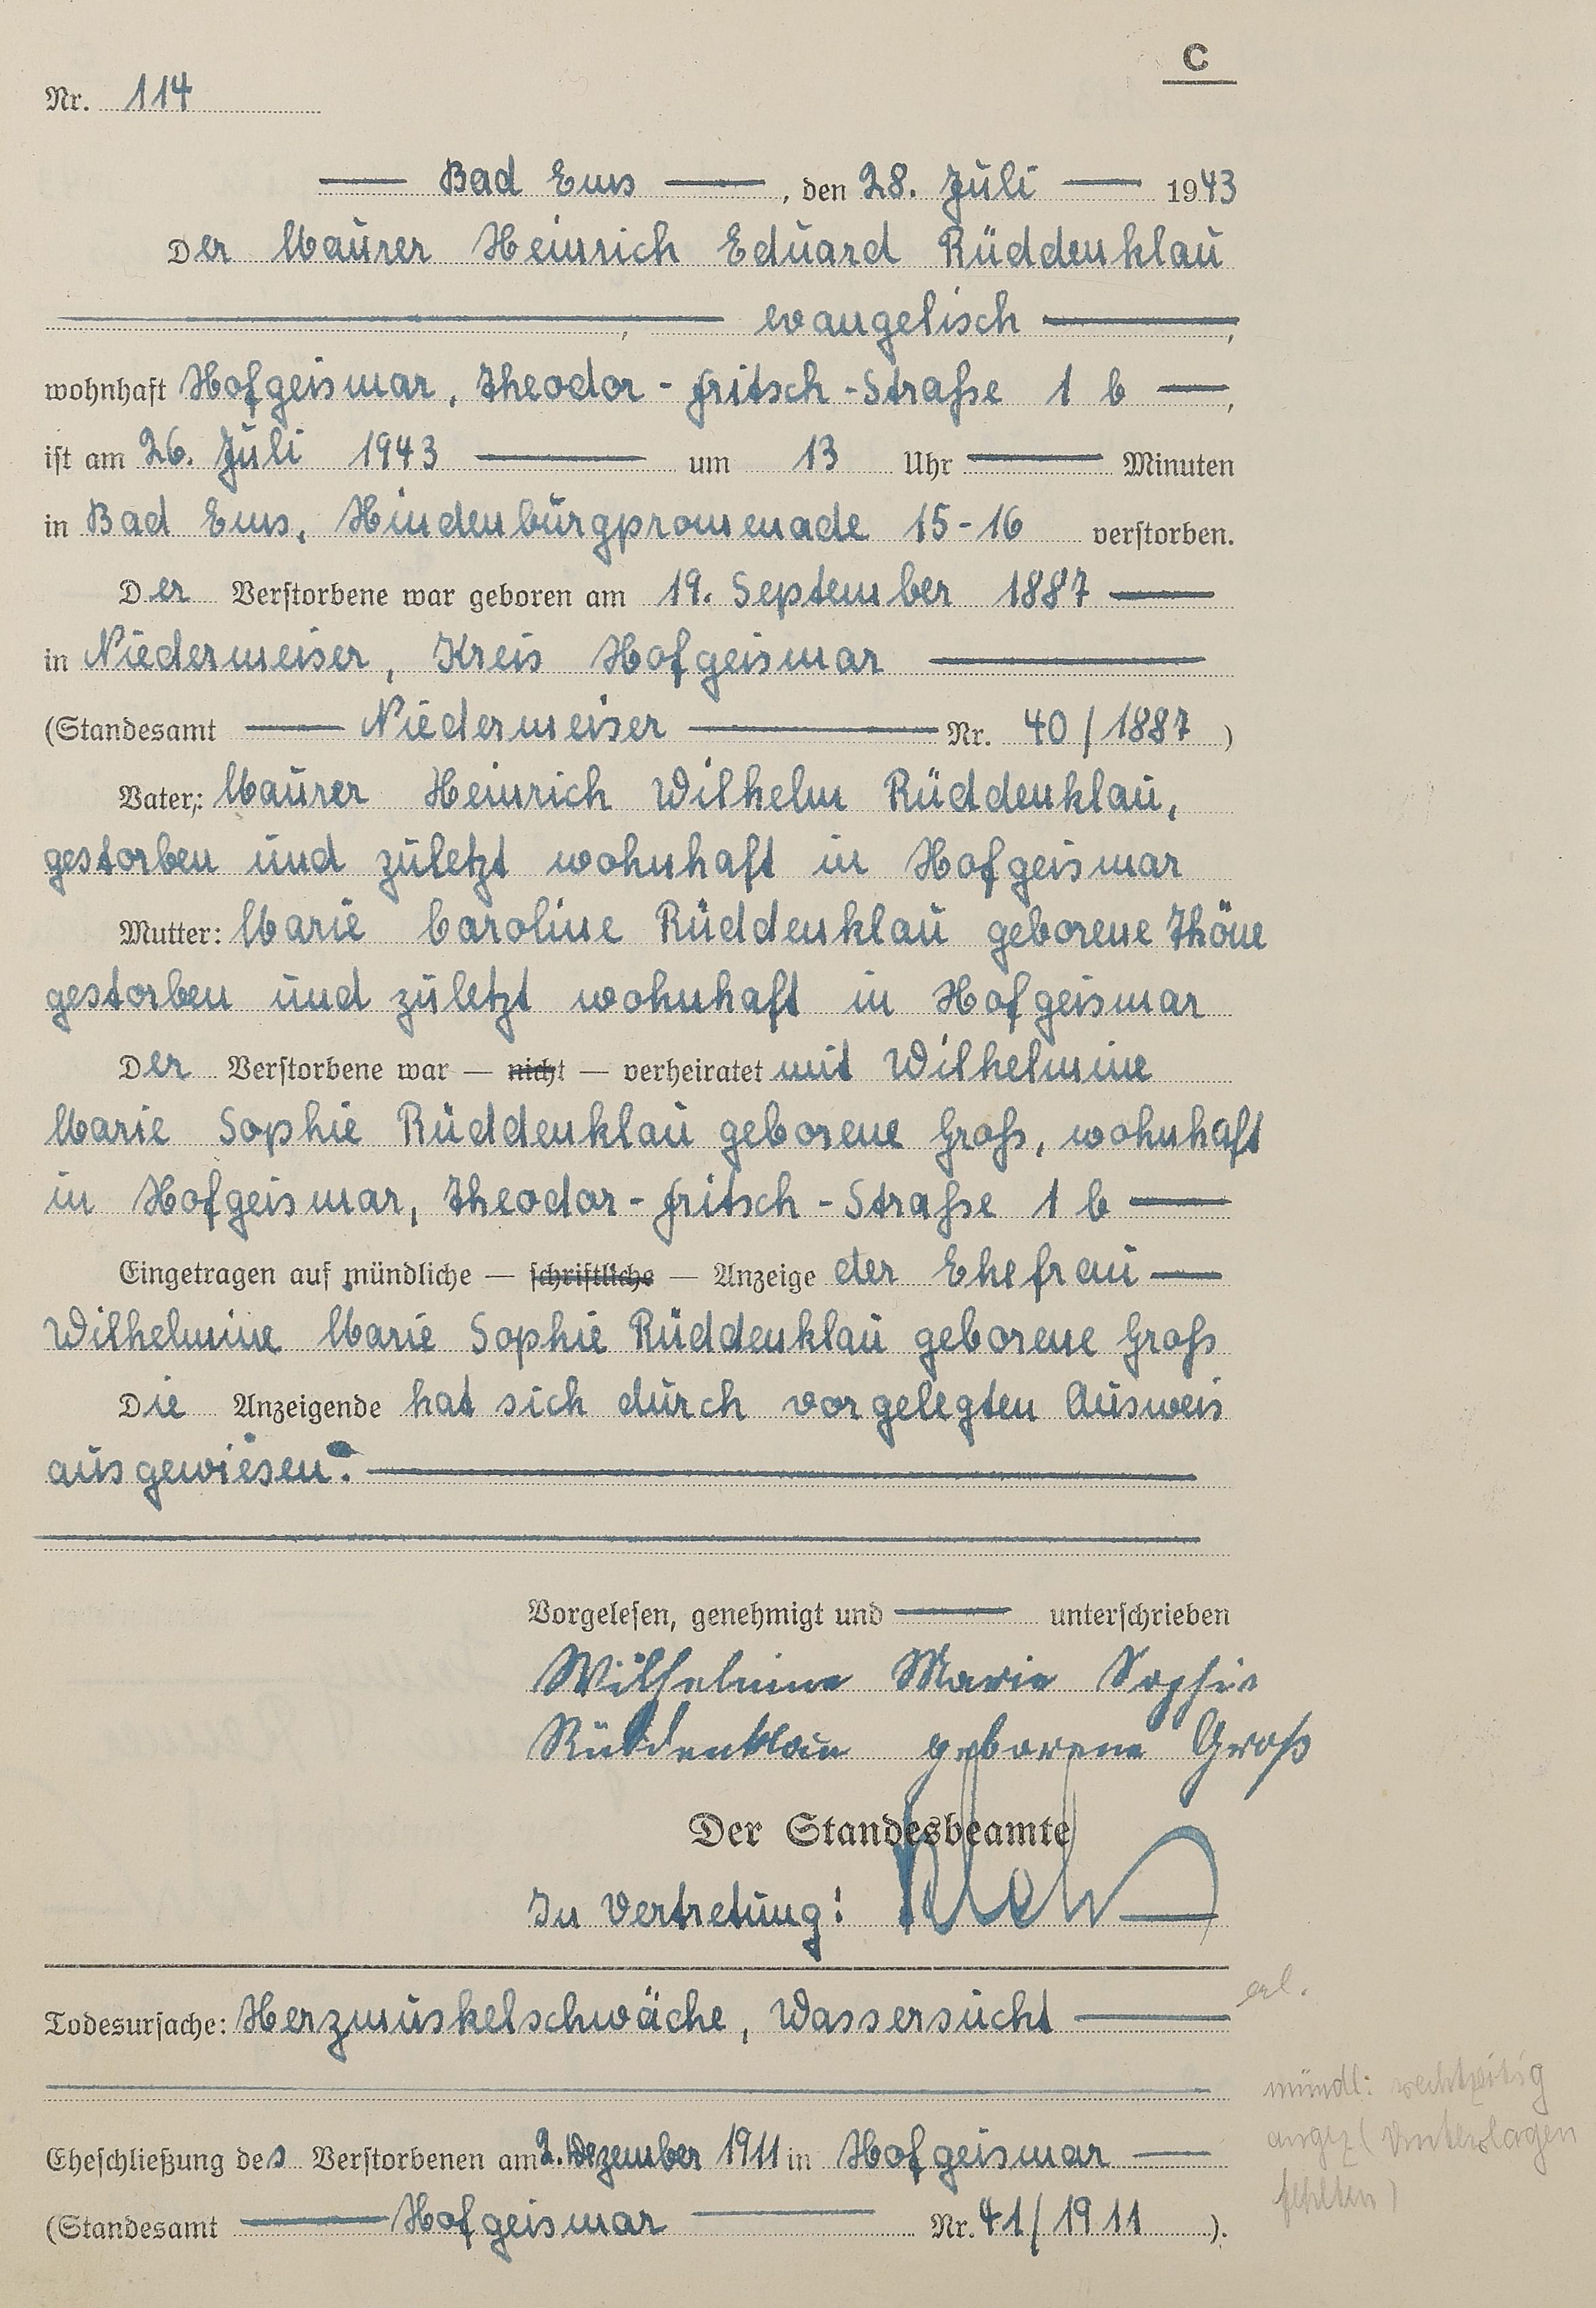 C
Nr. 114
Bad Ems, den 28. Juli 1943
Der Maurer Heinrich Eduard Rüddenklau
, evangelisch,
wohnhaft Hofgeismar, Theodor-Fritsch-Straße 1 b,
ist am 26. Juli 1943 um 13 Uhr Minuten
in Bad Ems, Hindenburgpromenade 15-16 verstorben.
Der Verstorbene war geboren am 19. September 1887
in Niedermeiser, Kreis Hofgeismar
(Standesamt Niedermeiser Nr. 40/1887)
Vater: Maurer Heinrich Wilhelm Rüddenklau,
gestorben und zuletzt wohnhaft in Hofgeismar
Mutter: Marie Caroline Rüddenklau geborene Thöne
gestorben und zuletzt wohnhaft in Hofgeismar
Der Verstorbene war — nicht — verheiratet mit Wilhelmine
Marie Sophie Rüddenklau geborene Groß, wohnhaft
in Hofgeismar, Theodor-Fritsch-Straße 1 b
Eingetragen auf mündliche — schriftliche — Anzeige der Ehefrau
Wilhelmine Marie Sophie Rüddenklau geborene Groß
Die Anzeigende hat sich durch vorgelegten Ausweis
ausgewiesen.
Vorgelesen, genehmigt und unterschrieben
Wilhelmine Marie Sophie
Rüddenklau geborene Groß
Der Standesbeamte
In Vertretung:
erl.
Todesursache: Herzmuskelschwäche, Wassersucht
mündl: rechtzeitig
angez (Unterlagen
fehlten)
Eheschließung des Verstorbenen am 2. Dezember 1911 in Hofgeismar
(Standesamt Hofgeismar Nr. 41/1911).